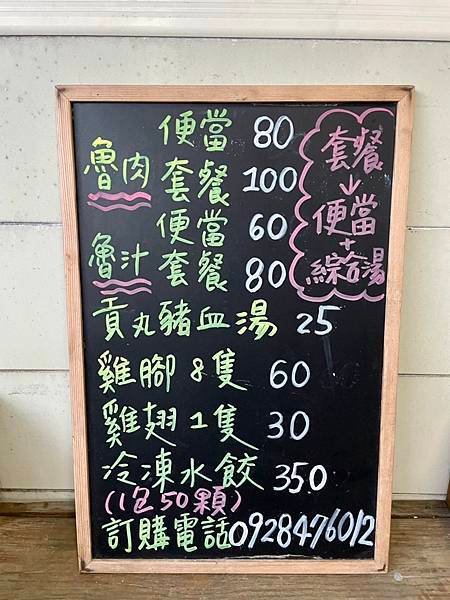 魯肉 便當 80
套餐 100
魯汁 便當 60
套餐 80
貢丸豬血湯 25
雞腳 8隻 60
雞翅 1隻 30
冷凍水餃 350
(1包50顆)
訂購電話0928476012
套餐
↓
便當
+
綜合湯